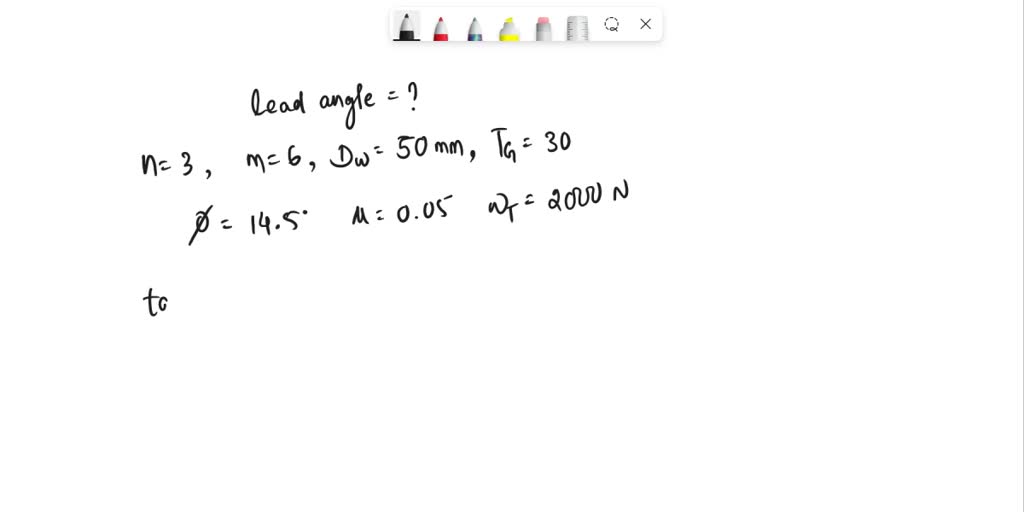 lead angle = ?
n = 3, m = 6, Dw = 50 mm, TG = 30
φ = 14.5° μ = 0.05 WT = 2000 N
ta